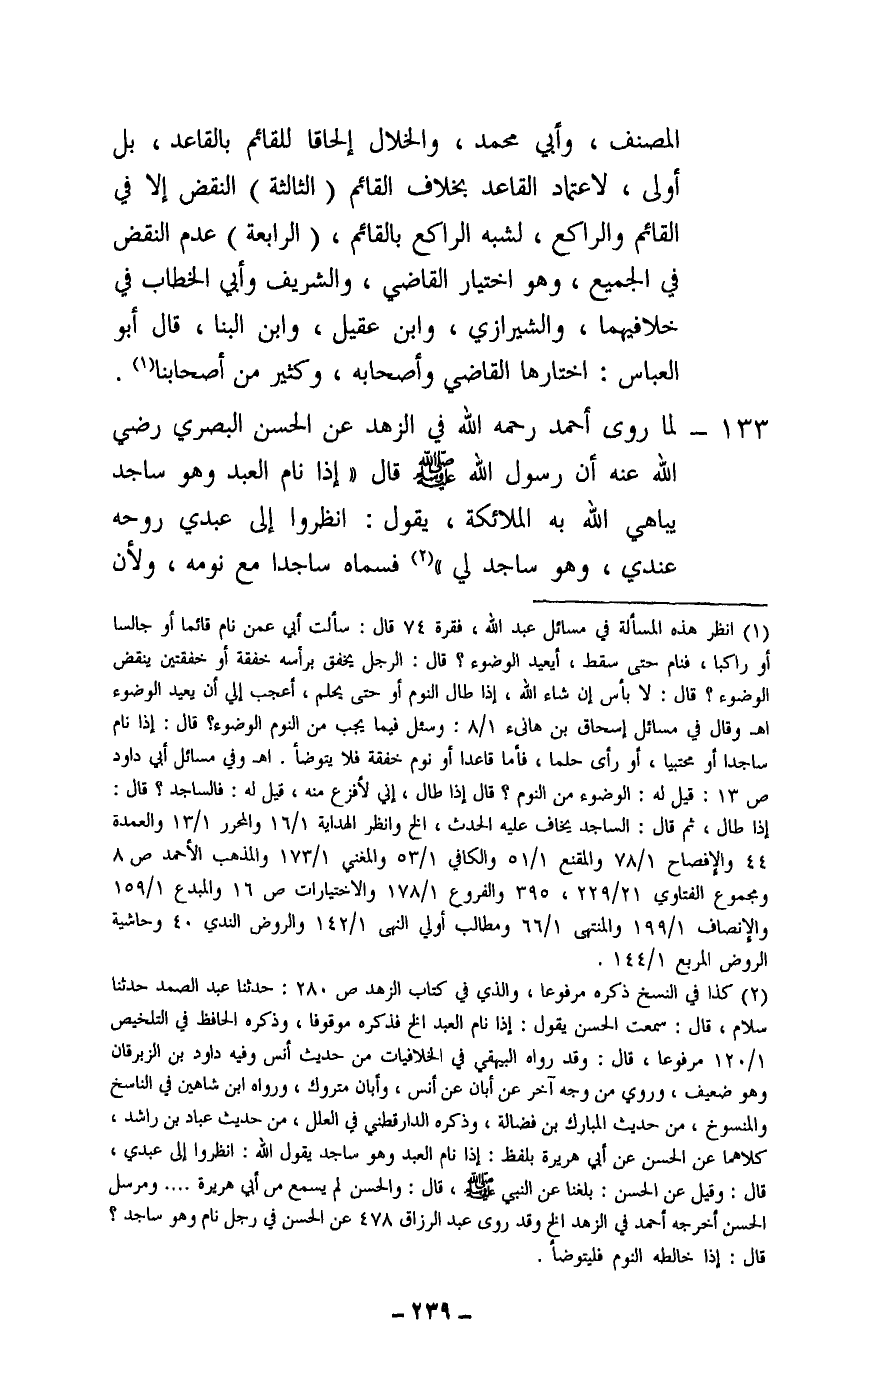 المصنف ، وأبي محمد ، والخلال إلحاقا للقائم بالقاعد ، بل
أولى ، لاعتماد القاعد بخلاف القائم ( الثالثة ) النقض إلا في
القائم والراكع ، لشبه الراكع بالقائم ، ( الرابعة ) عدم النقض
في الجميع ، وهو اختيار القاضي ، والشريف وأبي الخطاب في
خلافيهما ، والشيرازي ، وابن عقيل ، وابن البنا ، قال أبو
العباس : اختارها القاضي وأصحابه ، وكثير من أصحابنا(١) .
١٣٣ – لما روى أحمد رحمه الله في الزهد عن الحسن البصري رضي
الله عنه أن رسول الله ﷺ قال « إذا نام العبد وهو ساجد
يباهي الله به الملائكة ، يقول : انظروا إلى عبدي روحه
عندي ، وهو ساجد لي »(٢) فسماه ساجدا مع نومه ، ولأن
(١) انظر هذه المسألة في مسائل عبد الله ، فقرة ٧٤ قال : سألت أبي عمن نام قائما أو جالسا
أو راكبا ، فنام حتى سقط ، أيعيد الوضوء ؟ قال : الرجل يخفق برأسه خفقة أو خفقتين ينقض
الوضوء ؟ قال : لا بأس إن شاء الله ، إذا طال النوم أو حتى يحلم ، أعجب إلي أن يعيد الوضوء
اهـ وقال في مسائل إسحاق بن هانىء ٨/١ : وسئل فيما يجب من النوم الوضوء؟ قال : إذا نام
ساجدا أو محتبيا ، أو رأى حلما ، فأما قاعدا أو نوم خفقة فلا يتوضأ . اهـ وفي مسائل أبي داود
ص ١٣ : قيل له : الوضوء من النوم ؟ قال إذا طال ، إني لأفزع منه ، قيل له : فالساجد ؟ قال :
إذا طال ، ثم قال : الساجد يخاف عليه الحدث ، الخ وانظر الهداية ١٦/١ والمحرر ١٣/١ والعمدة
٤٤ والإفصاح ٧٨/١ والمقنع ٥١/١ والكافي ٥٣/١ والمغني ١٧٣/١ والمذهب الأحمد ص ٨
ومجموع الفتاوي ٢٢٩/٢١ ، ٣٩٥ والفروع ١٧٨/١ والاختيارات ص ١٦ والمبدع ١٥٩/١
والإنصاف ١٩٩/١ والمنتهى ٦٦/١ ومطالب أولي النهى ١٤٢/١ والروض الندي ٤٠ وحاشية
الروض المربع ١٤٤/١ .
(٢) كذا في النسخ ذكره مرفوعا ، والذي في كتاب الزهد ص ٢٨٠ : حدثنا عبد الصمد حدثنا
سلام ، قال : سمعت الحسن يقول : إذا نام العبد الخ فذكره موقوفا ، وذكره الحافظ في التلخيص
١٢٠/١ مرفوعا ، قال : وقد رواه البيهقي في الخلافيات من حديث أنس وفيه داود بن الزبرقان
وهو ضعيف ، وروي من وجه آخر عن أبان عن أنس ، وأبان متروك ، ورواه ابن شاهين في الناسخ
والمنسوخ ، من حديث المبارك بن فضالة ، وذكره الدارقطني في العلل ، من حديث عباد بن راشد ،
كلاهما عن الحسن عن أبي هريرة بلفظ : إذا نام العبد وهو ساجد يقول الله : انظروا إلى عبدي ،
قال : وقيل عن الحسن : بلغنا عن النبي ﷺ ، قال : والحسن لم يسمع من أبي هريرة .... ومرسل
الحسن أخرجه أحمد في الزهد الخ وقد روى عبد الرزاق ٤٧٨ عن الحسن في رجل نام وهو ساجد ؟
قال : إذا خالطه النوم فليتوضأ .
– ٢٣٩ –